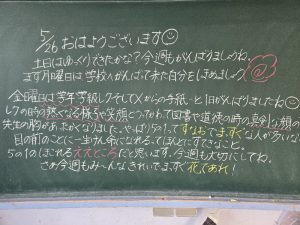 5/26 おはようございます
土日はゆっくりできたかな？今週もがんばりましょうね。
まず月曜日は学校へがんばって来た自分をほめましょう
金曜日は学年学級レクそしてXからの手紙…と1日がんばりましたね
レクの時の熱くなる様子や笑顔とってかわって図書や道徳の時の真剣な顔の
先生の胸があたたかくなりました。やはり5の1ってすなおでまっすぐな人が多いな
目の前のことに一生懸命になれるってほんとにすてきなこと。
5の1のほこれるええところだと思います。今週も大切にしてね。
さぁ今週もみ〜んなきれいでまっすぐ花であれ！